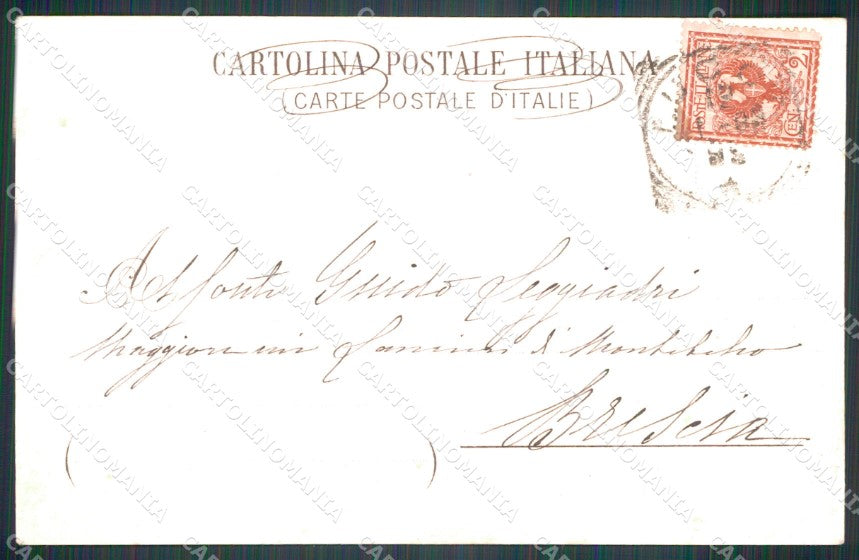 CARTOLINA POSTALE ITALIANA
(CARTE POSTALE D'ITALIE)
POSTE ITALIANE
CEN. 2
Al Conte Guido Leggiadri
Maggiore nei Lancieri di Montebello
Brescia
CARTOLINOMANIA